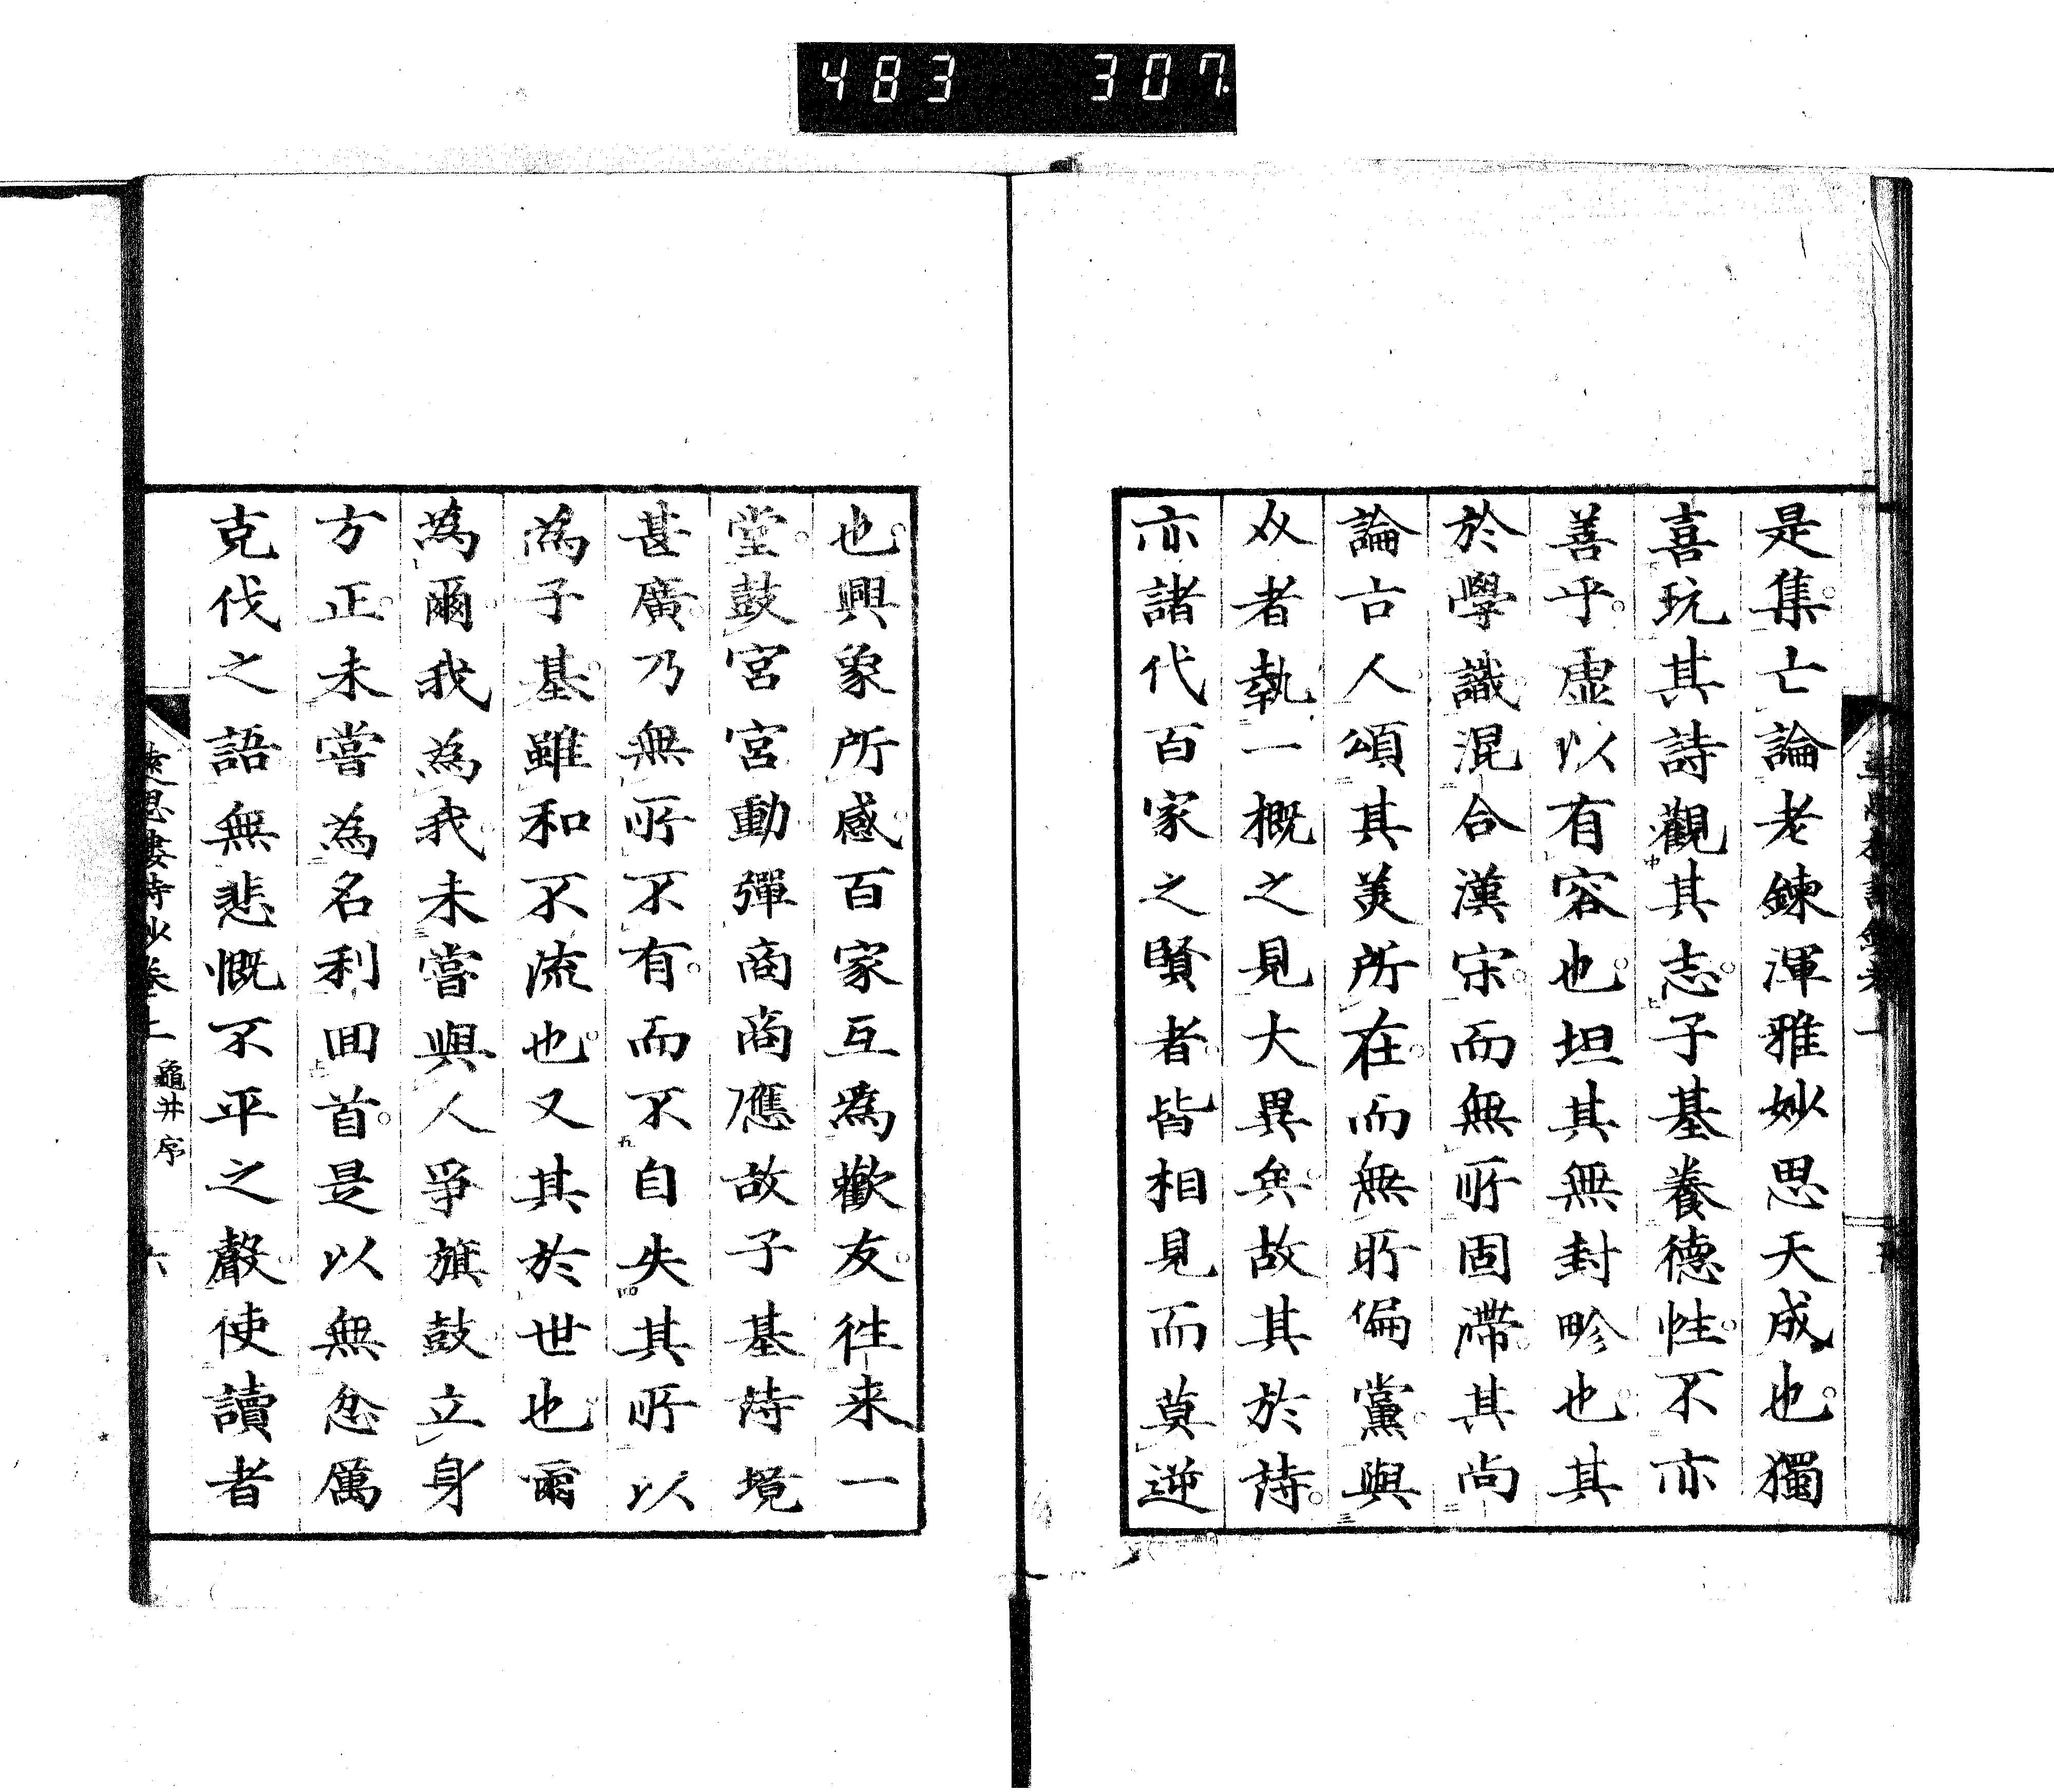 483 307
是集亡論老鍊渾雅妙思天成也獨
喜玩其詩觀其志子基養德性不亦
善乎虛以有容也坦其無封畛也其
於學識混合漢宋而無所固滯其尚
論古人頌其美所在而無所偏黨與
夫者執一概之見大異矣故其於詩
亦諸代百家之賢者皆相見而莫逆
也興象所感百家互為歡友往来一
堂鼓宮宮動彈商商應故子基詩境
甚廣乃無所不有而不自失其所以
為子基雖和不流也又其於世也爾
為爾我為我未嘗與人爭旗鼓立身
方正未嘗為名利回首是以無忿厲
克伐之語無悲慨不平之聲使讀者
遠思樓詩鈔卷上 龜井序 六